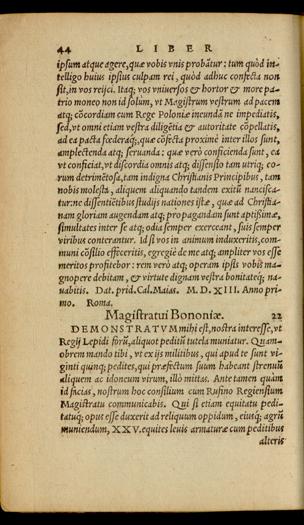 44 LIBER
ipsum atque agere, quæ vobis vnis probātur: tum quòd in-
telligo huius ipsius culpam rei, quòd adhuc confecta non
sit, in vos reijci. Itaq; vos vniuersos & hortor & more pa-
trio moneo non id solum, vt Magistrum vestrum ad pacem
atq; cōcordiam cum Rege Poloniæ incundā ne impediatis,
sed, vt omni etiam vestra diligētia & autoritate cōpellatis,
ad ea pacta fœderaq́;, quæ cōfecta proximè inter illos sunt,
amplectenda atq; seruanda: quæ verò conficienda sunt, ea
vt conficiat, vt discordia omnis atq; dissensio tam utriq; eo-
rum detrimētosa, tam indigna Christianis Principibus, tam
nobis molesta, aliquem aliquando tandem exitū nanciscā-
tur: ne dissentiētibus studijs nationes istæ, quæ ad Christia-
nam gloriam augendam atq; propagandam sunt aptißimæ,
simultates inter se atq; odia semper exerceant, suis semper
viribus conterantur. Id si vos in animum induxeritis, com-
muni cōsilio effeceritis, egregiè de me atq; ampliter vos esse
meritos profitebor: rem verò atq; operam ipsis vobis ma-
gnopere debitam, & virtute dignam vestra bonitateq; na-
uabitis. Dat. prid. Cal. Maias. M. D. XIII. Anno pri-
mo. Roma.
Magistratui Bononiæ. 22
DEMONSTRATVM mihi est, nostra interesse, vt
Regij Lepidi forū, aliquot peditū tutela muniatur. Quam-
obrem mando tibi, vt ex ijs militibus, qui apud te sunt vi-
ginti quinq; pedites, qui præfectum suum habeant strenuū
aliquem ac idoneum virum, illò mittas. Ante tamen quàm
id facias, nostrum hoc consilium cum Rufino Regiensium
Magistratu communicabis. Qui si etiam equitatu pedi-
tatuq; opus esse duxerit ad reliquum oppidum, eiusq; agrū
muniendum, XXV. equites leuis armaturæ cum peditibus
alteris